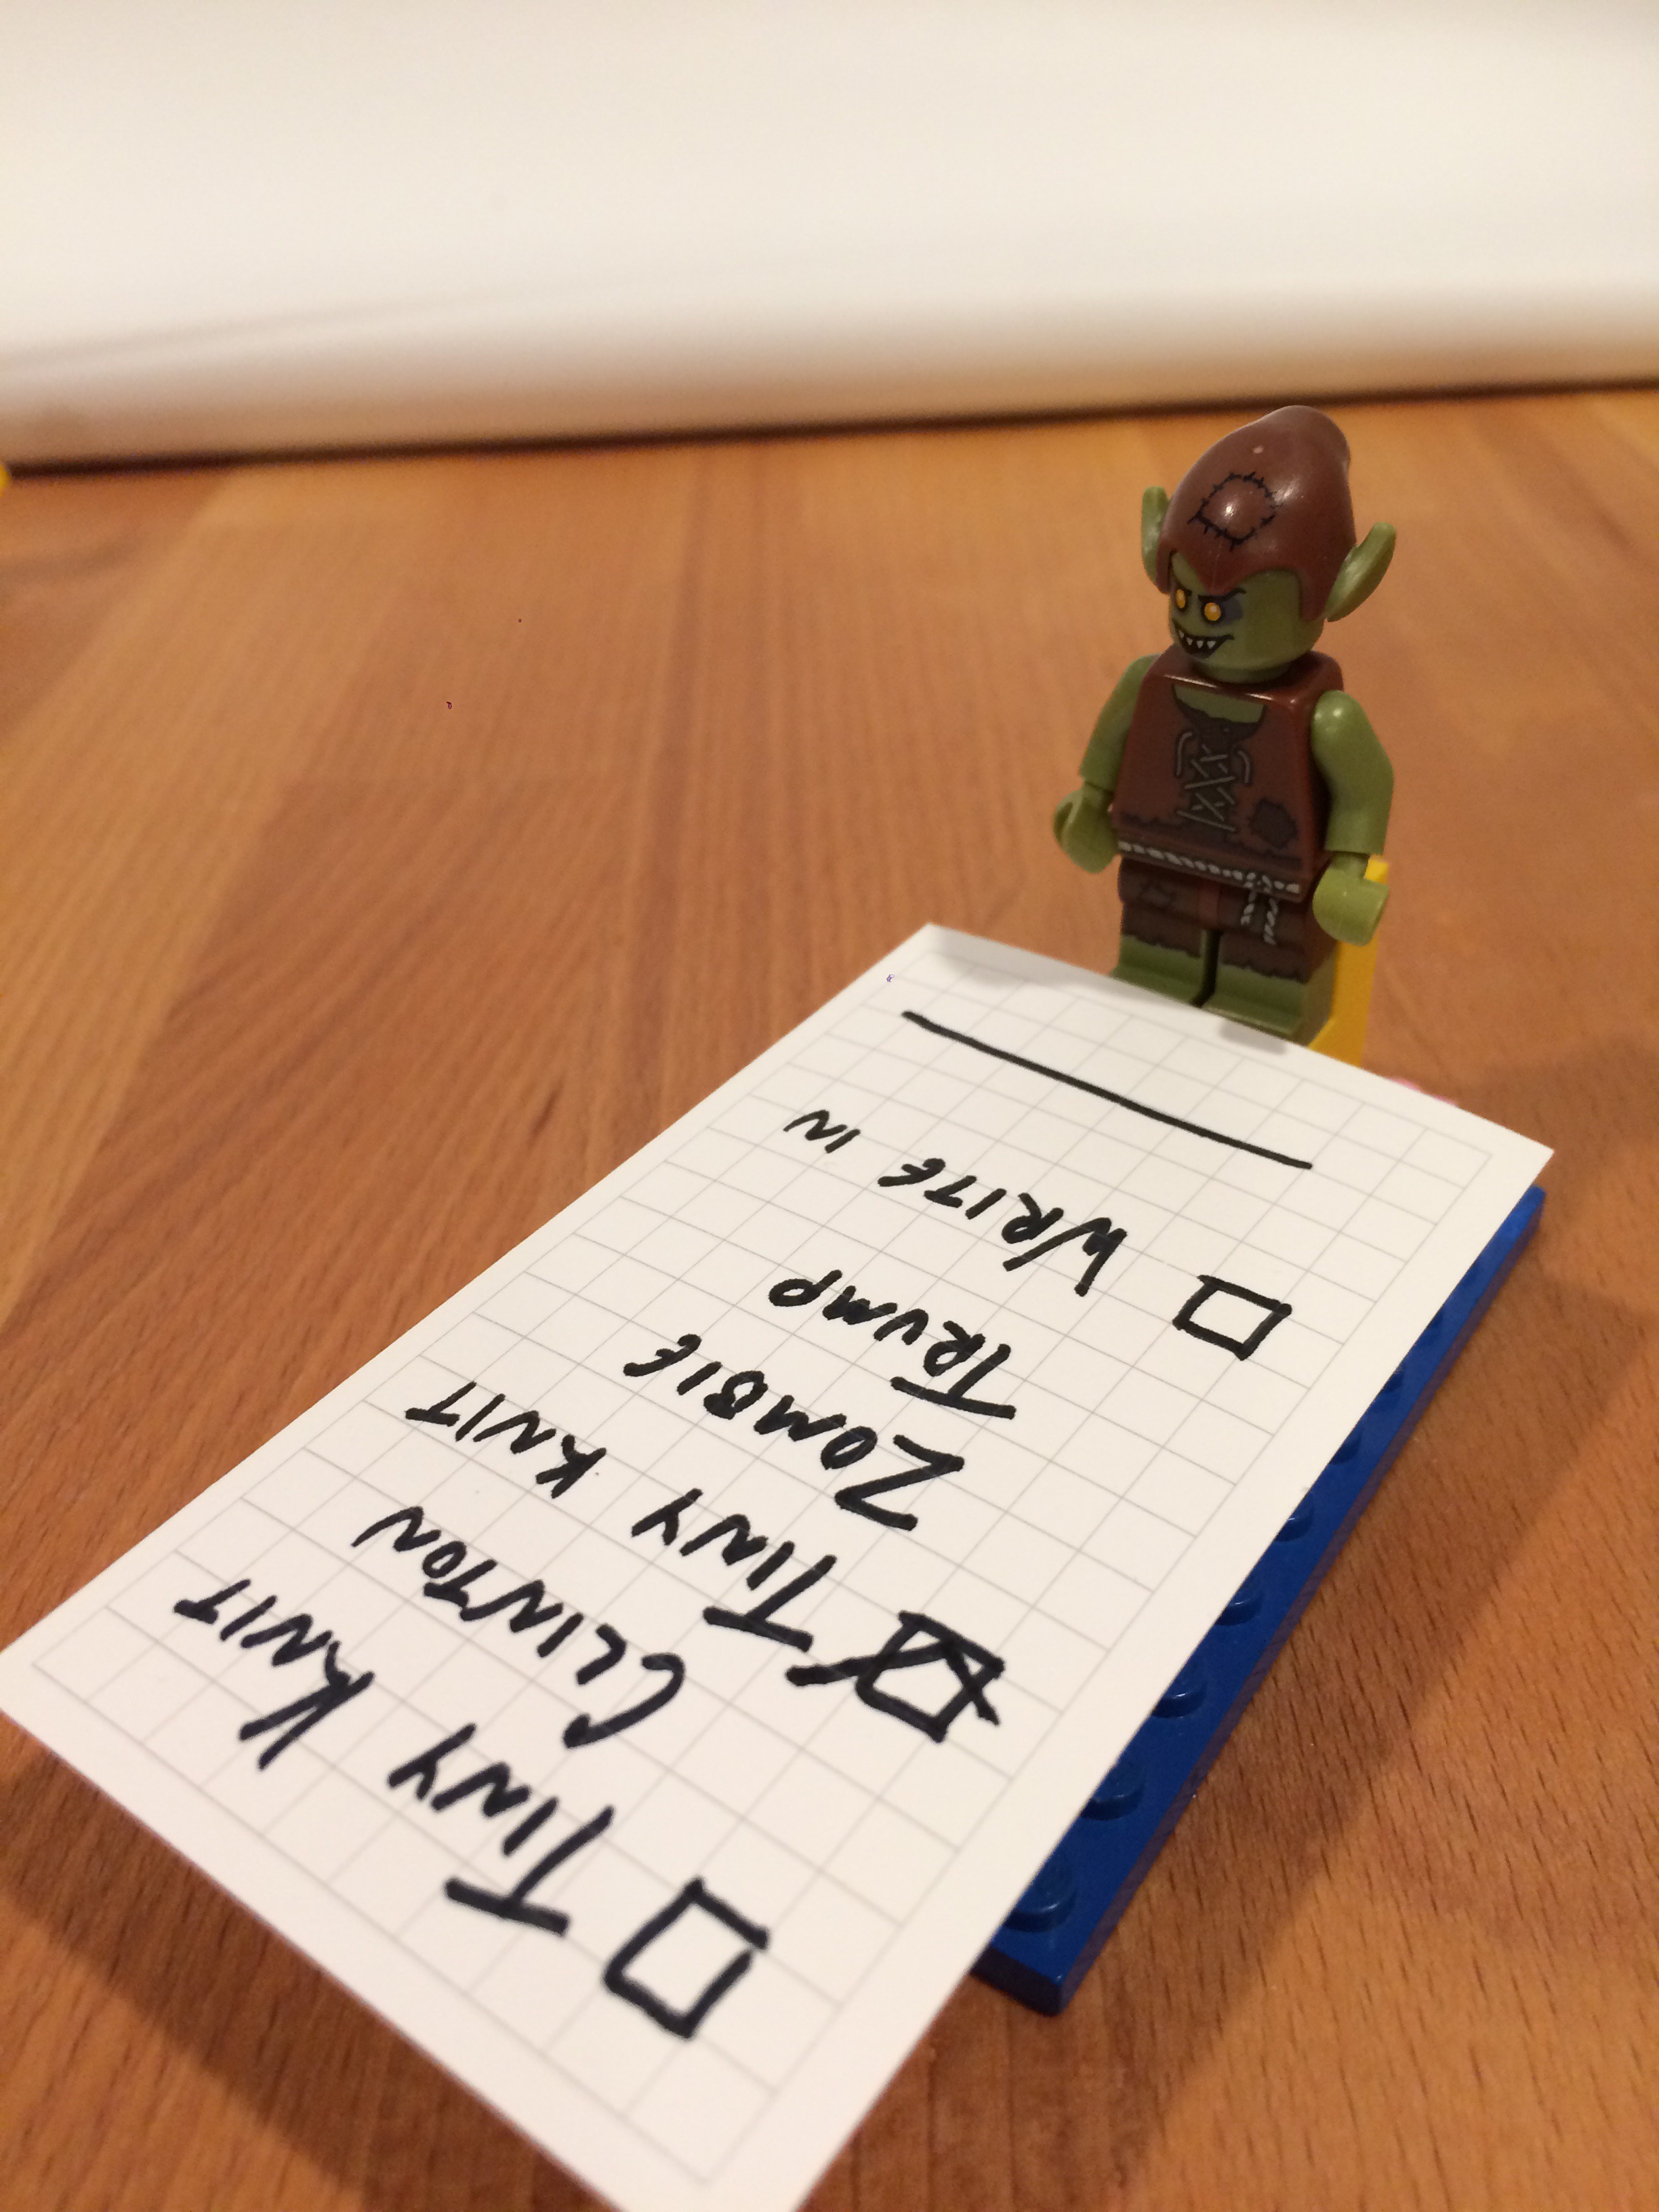 ☐ TINY KNIT
CLINTON
☒ TINY KNIT
ZOMBIE
TRUMP
☐ WRITE IN